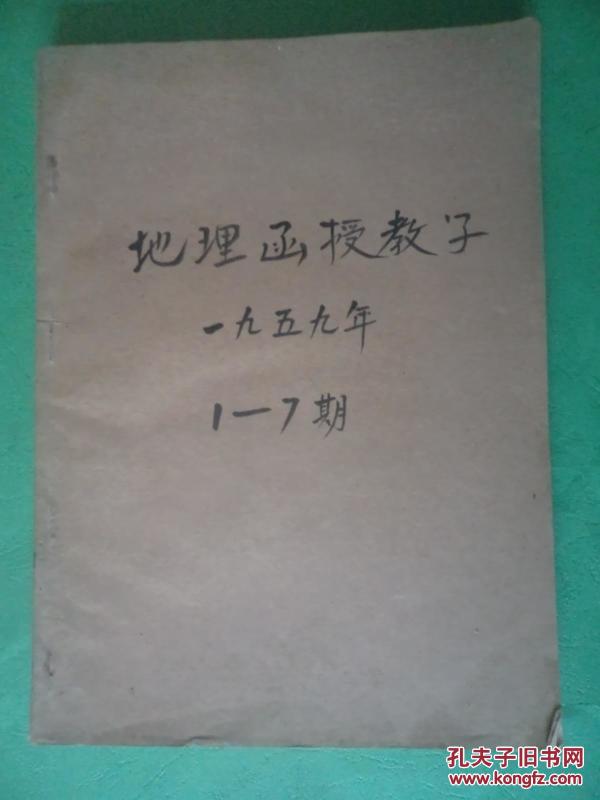 地理函授教学
一九五九年
1—7期
孔夫子旧书网
www.kongfz.com